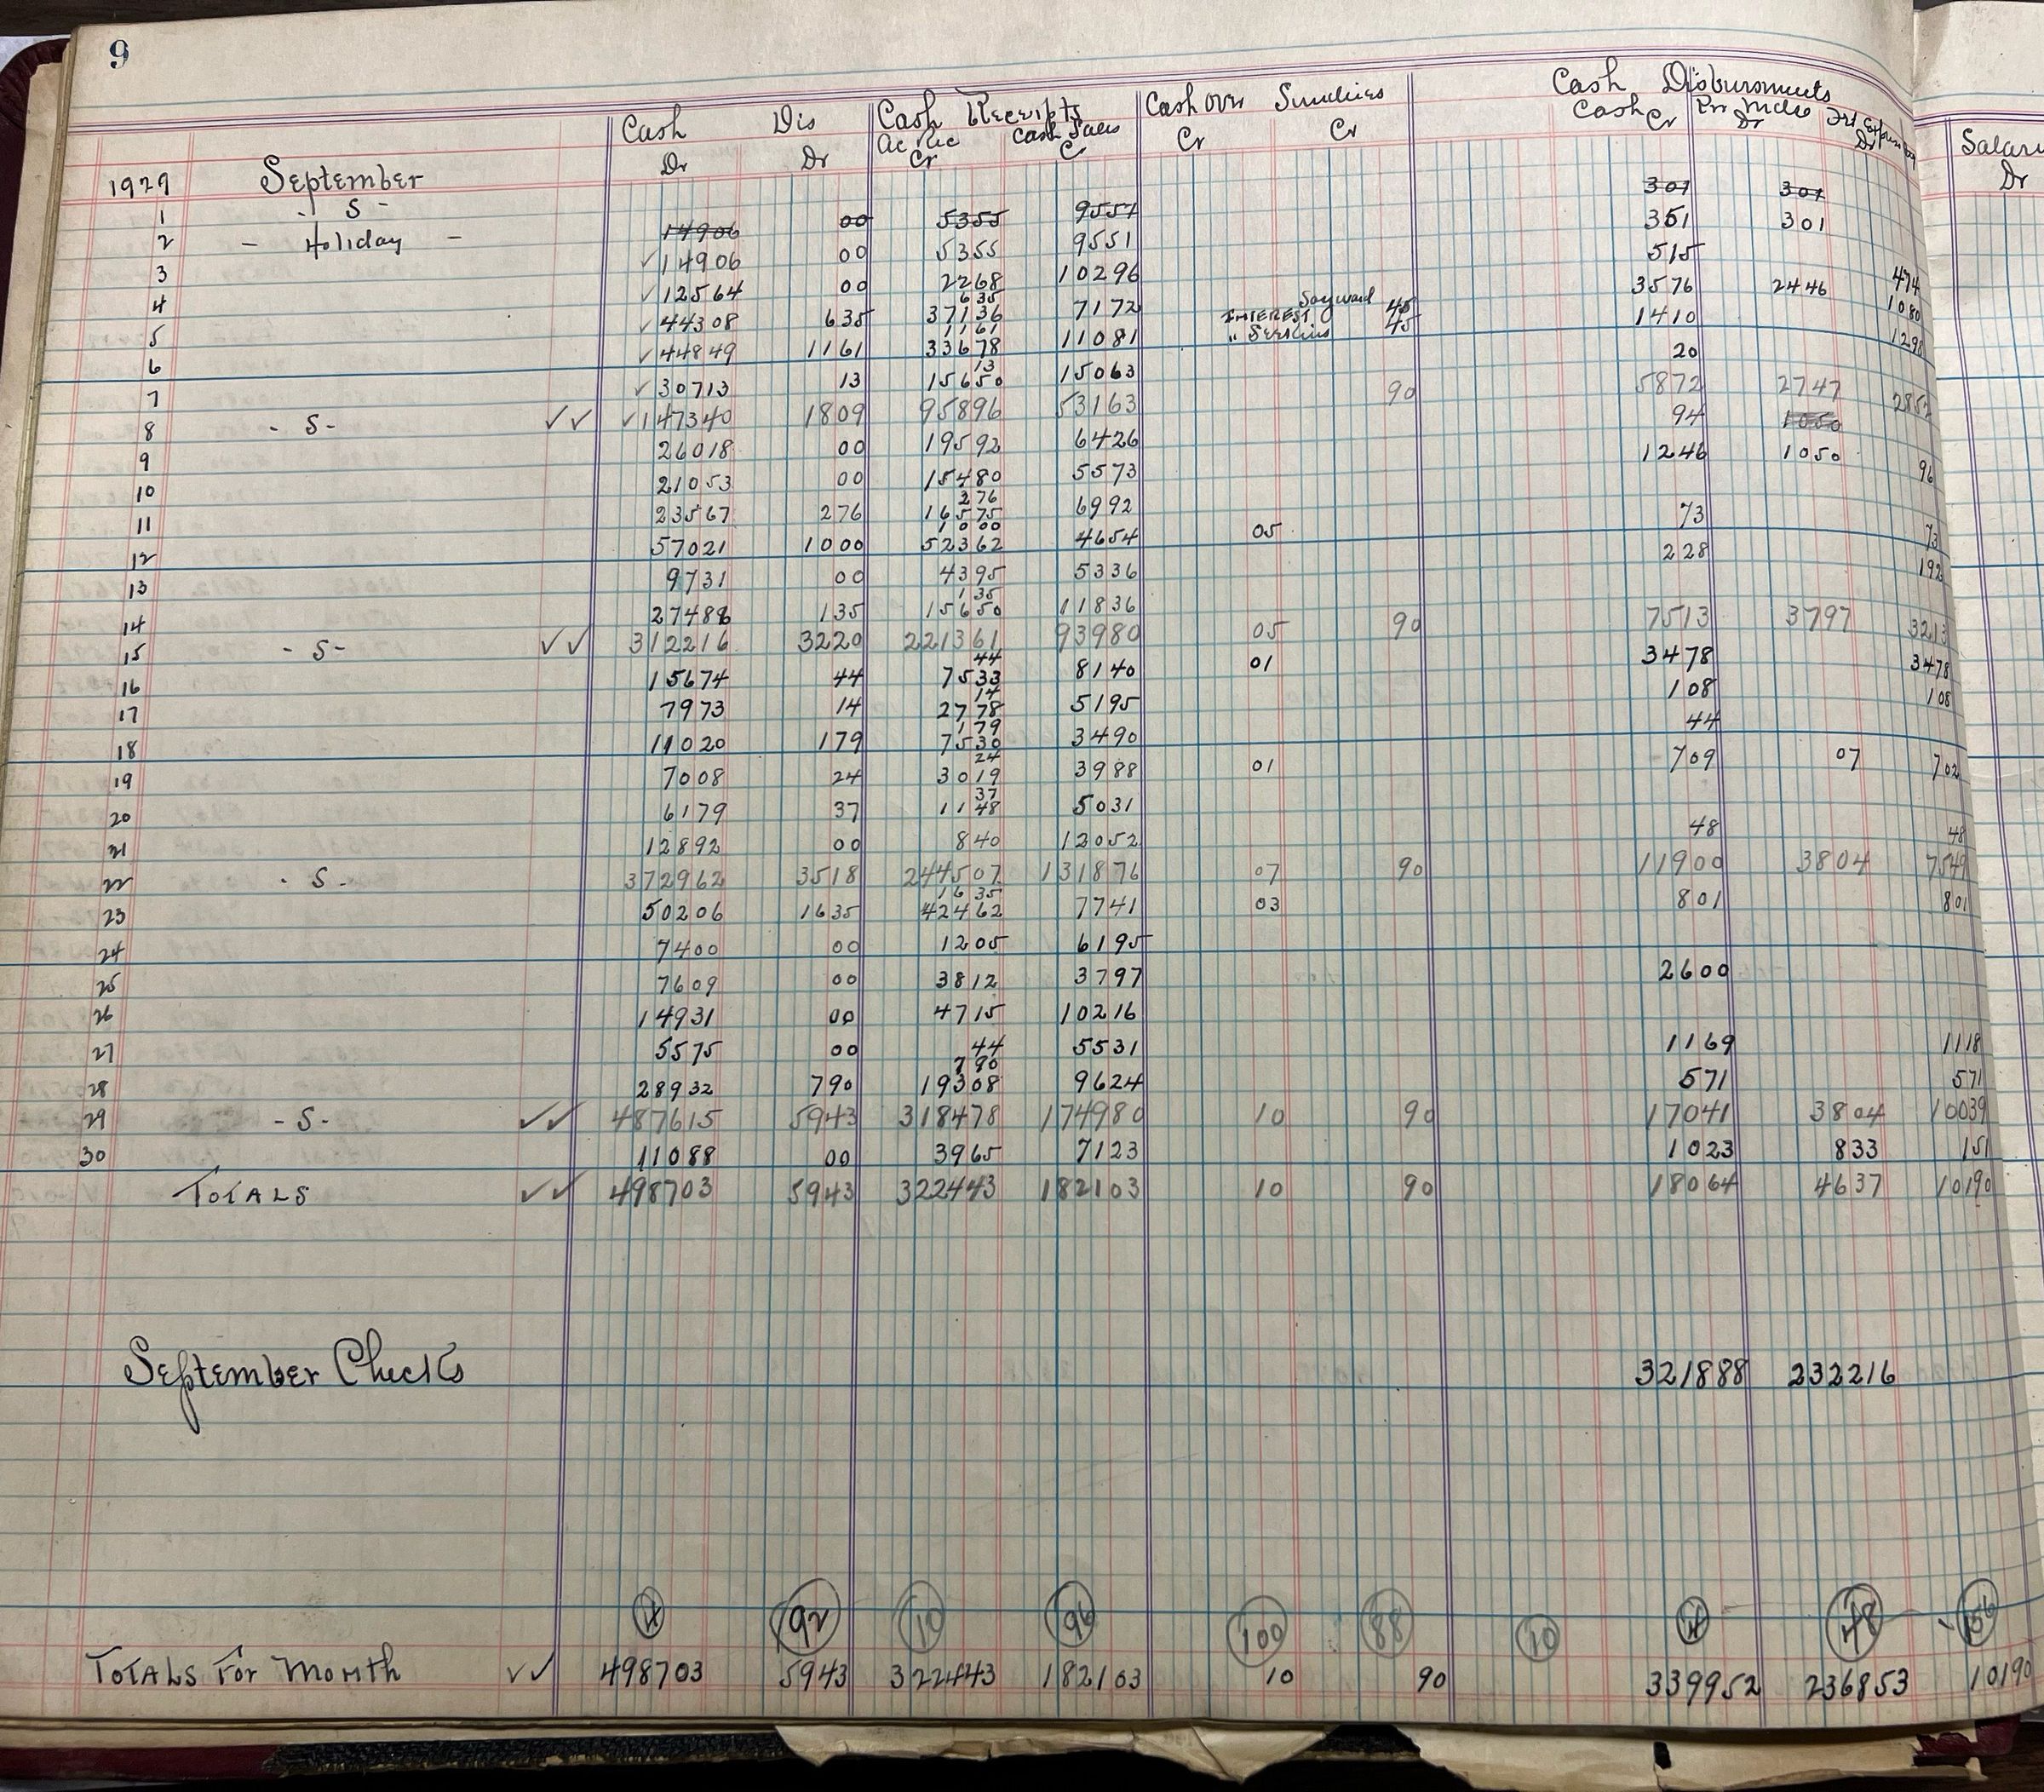 9
Cash Receipts
Cash Disbursments
Cash Dis Ac Rec Cash Sales Cash over Sundries Cash Pr Mdse Salari
Dr Dr Cr Cr Cr Cr Cr Dr Dr Dr
1929 September
1 - S -
2 - Holiday - 14906 00 5355 9551 301 301
3 14906 00 5355 9551 351 301
4 12564 00 2268 10296 515
635 Sayward 45
5 44308 635 37136 7172 INTEREST 3576 2446 474
1161
6 44849 1161 33678 11081 " 45 1410 1080
13 1298
7 30713 13 15650 15063 20
8 - S - 147340 1809 95896 53163 90 5872 2747 285
9 26018 00 19592 6426 94 1050
10 21053 00 15480 5573 1246 1050 96
276
11 23567 276 16575 6992
1000
12 57021 1000 52362 4654 05 73 73
13 9731 00 4395 5336 228 192
135
14 27486 135 15650 11836
15 - S - 312216 3220 221361 93980 05 90 7513 3797 3213
44
16 15674 44 7533 8140 01 3478 3478
14
17 7973 14 2778 5195 108 108
179
18 11020 179 7530 3490 44
24
19 7008 24 3019 3988 01 709 07 702
37
20 6179 37 1148 5031
21 12892 00 840 12052 48 48
22 - S - 372962 3518 244507 131876 07 90 11900 3804 7549
1635
23 50206 1635 42462 7741 03 801 801
24 7400 00 1205 6195
25 7609 00 3812 3797 2600
26 14931 00 4715 10216
27 5575 00 44 5531 1169 1118
790
28 28932 790 19308 9624 571 571
29 - S - 487615 5943 318478 174980 10 90 17041 3804 10039
30 11088 00 3965 7123 1023 833 151
TOTALS 498703 5943 322443 182103 10 90 18064 4637 10190
September Checks 321888 232216
92 10 96 100 88 10 48 156
TOTALS For Month 498703 5943 322443 182103 10 90 339952 236853 10190